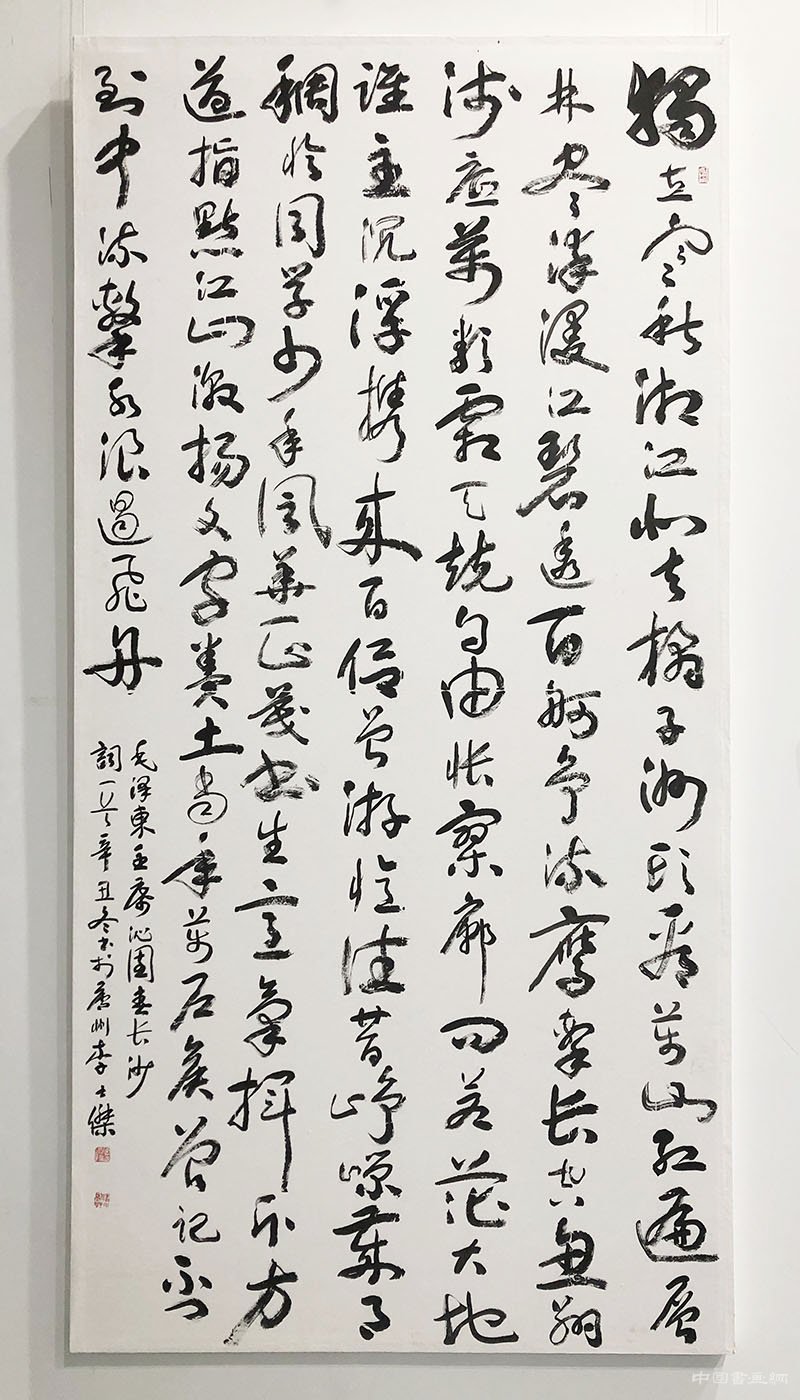 獨立寒秋湘江北去橘子洲頭看萬山紅遍層
林盡染漫江碧透百舸爭流鷹擊長空魚翔
淺底萬類霜天競自由悵寥廓問蒼茫大地
誰主沉浮攜來百侶曾游憶往昔崢嶸歲月
稠恰同学少年風華正茂書生意氣揮斥方
遒指點江山激揚文字糞土當年萬戶侯曾記否
到中流擊水浪遏飛舟
毛澤東主席沁園春長沙
詞一首辛丑冬書於廣州李士傑
中国書画網